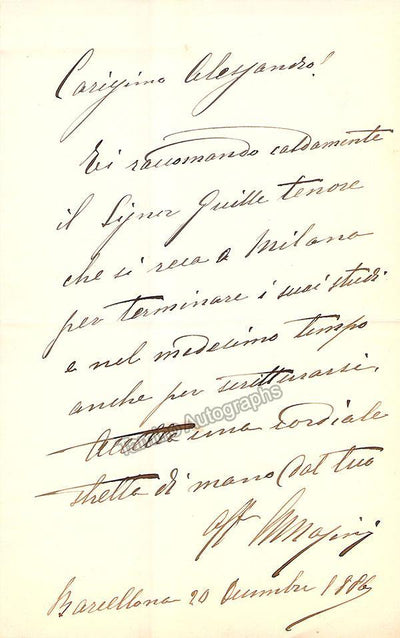 Carissimo Alessandro!
Ti raccomando caldamente
il Signor Guille tenore
che si reca a Milano
per terminare i suoi studi
e nel medesimo tempo
anche per scritturarsi.
Accetta una cordiale
stretta di mano dal tuo
aff Masini
Barcellona 20 Decembre 1886
Autographs